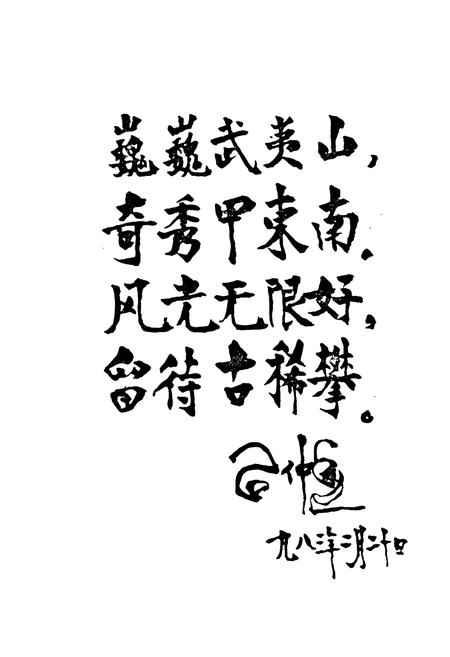 巍巍武夷山，
奇秀甲東南．
风光无限好，
留待古稀攀。
谷牧
一九八三年二月二十日